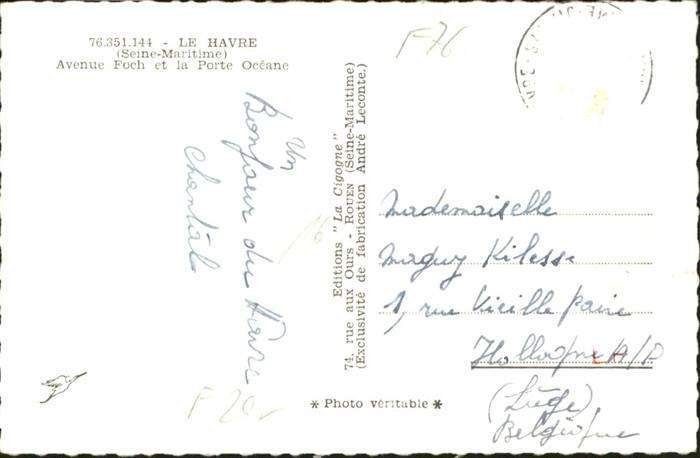 76.351.144 - LE HAVRE
(Seine-Maritime)
Avenue Foch et la Porte Océane
F76
Un
Bonjour du Hâvre
Chantal
Editions "La Cigogne"
74, rue aux Ours - ROUEN (Seine-Maritime)
(Exclusivité de fabrication André Leconte.)
Mademoiselle
Maguy Kilesse
1, rue Vieille paire
Hollogne A/P
(Liège)
Belgique
* Photo véritable *